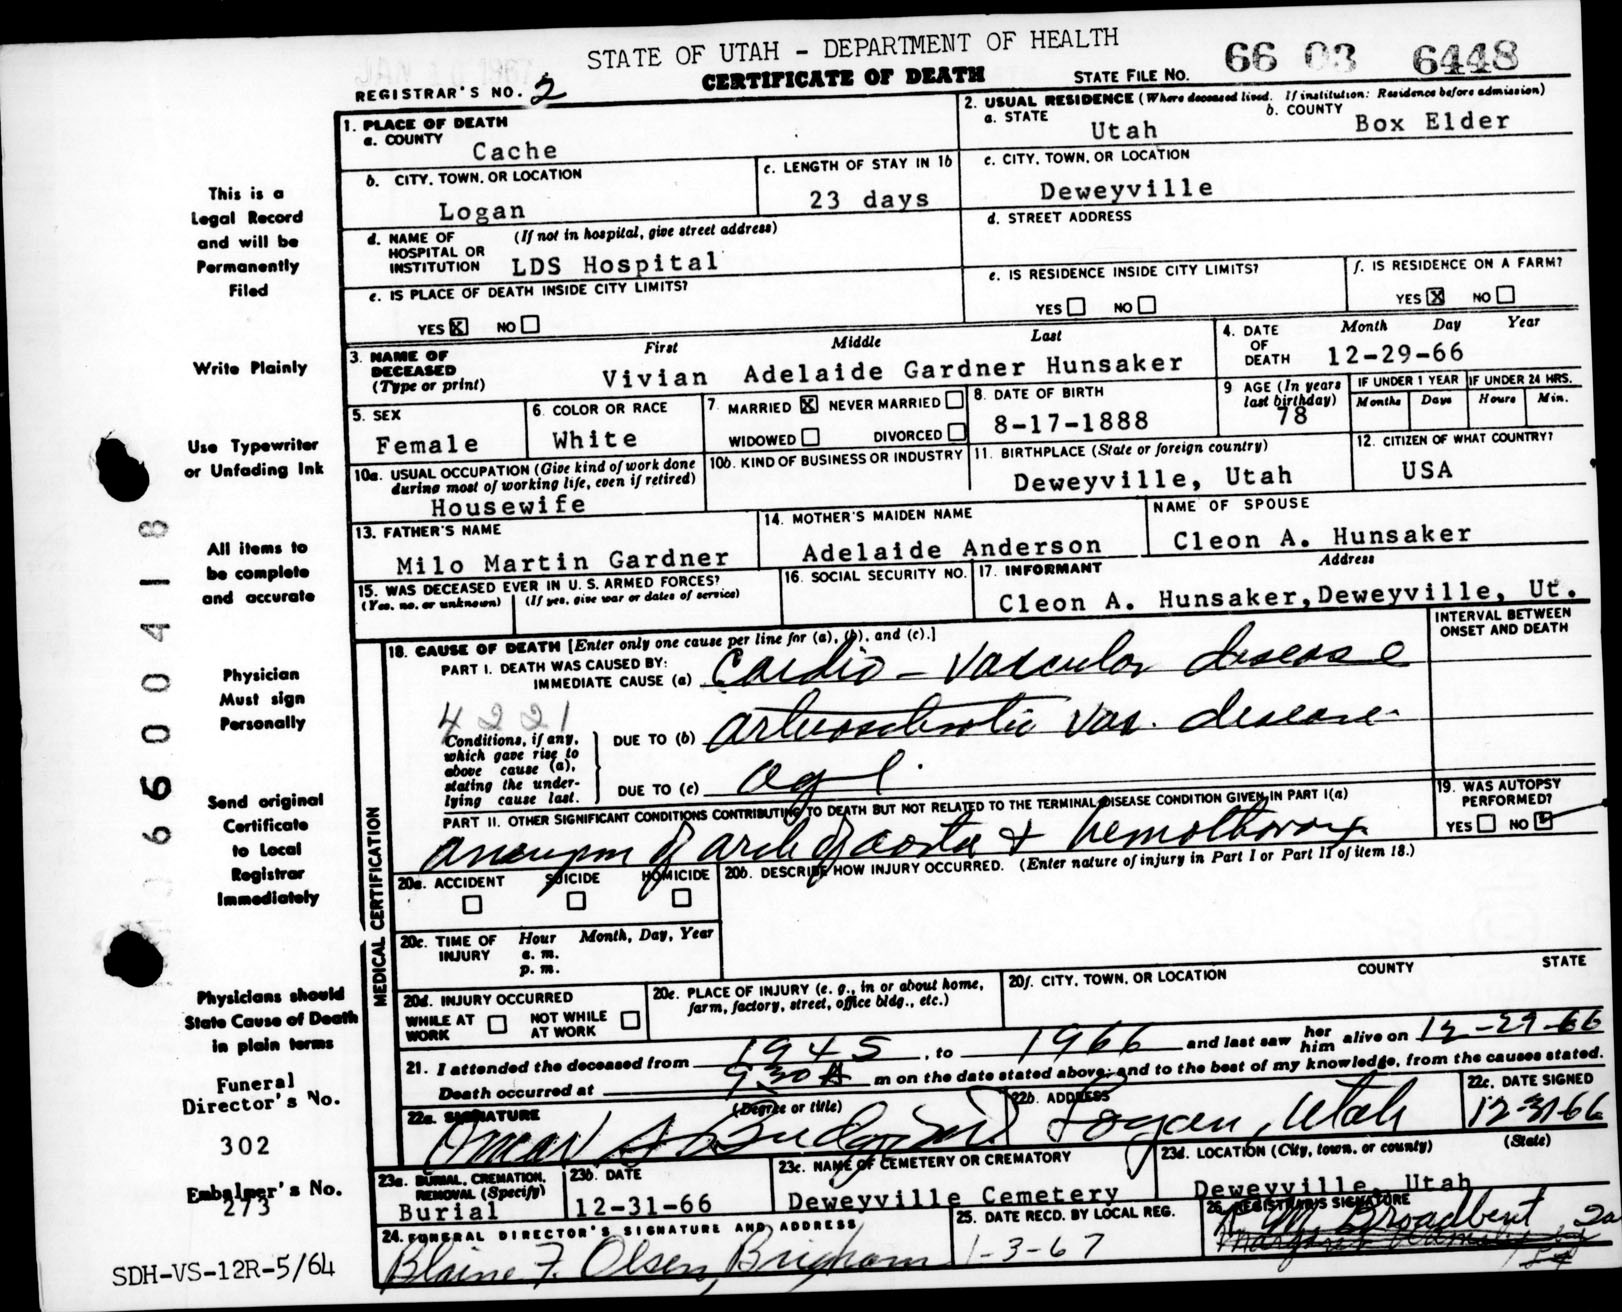 STATE OF UTAH - DEPARTMENT OF HEALTH
CERTIFICATE OF DEATH
STATE FILE NO. 66 03 6448
REGISTRAR'S NO. 2
1. PLACE OF DEATH
a. COUNTY
Cache
2. USUAL RESIDENCE (Where deceased lived. If institution: Residence before admission)
a. STATE
Utah
b. COUNTY
Box Elder
b. CITY, TOWN, OR LOCATION
Logan
c. LENGTH OF STAY IN 1b
23 days
c. CITY, TOWN, OR LOCATION
Deweyville
d. NAME OF HOSPITAL OR INSTITUTION
(If not in hospital, give street address)
LDS Hospital
d. STREET ADDRESS
e. IS PLACE OF DEATH INSIDE CITY LIMITS?
YES X NO
e. IS RESIDENCE INSIDE CITY LIMITS?
YES NO
f. IS RESIDENCE ON A FARM?
YES X NO
3. NAME OF DECEASED
(Type or print)
First Middle Last
Vivian Adelaide Gardner Hunsaker
4. DATE OF DEATH
Month Day Year
12-29-66
5. SEX
Female
6. COLOR OR RACE
White
7. MARRIED X NEVER MARRIED
WIDOWED DIVORCED
8. DATE OF BIRTH
8-17-1888
9 AGE (In years last birthday)
78
IF UNDER 1 YEAR
Months Days
IF UNDER 24 HRS.
Hours Min.
10a. USUAL OCCUPATION (Give kind of work done
during most of working life, even if retired)
Housewife
10b. KIND OF BUSINESS OR INDUSTRY
11. BIRTHPLACE (State or foreign country)
Deweyville, Utah
12. CITIZEN OF WHAT COUNTRY?
USA
13. FATHER'S NAME
Milo Martin Gardner
14. MOTHER'S MAIDEN NAME
Adelaide Anderson
NAME OF SPOUSE
Cleon A. Hunsaker
15. WAS DECEASED EVER IN U.S. ARMED FORCES?
(Yes, no, or unknown) (If yes, give war or dates of service)
16. SOCIAL SECURITY NO.
17. INFORMANT Address
Cleon A. Hunsaker, Deweyville, Ut.
18. CAUSE OF DEATH [Enter only one cause per line for (a), (b), and (c).]
INTERVAL BETWEEN ONSET AND DEATH
PART I. DEATH WAS CAUSED BY:
IMMEDIATE CAUSE (a) Cardio - vascular disease
4221
Conditions, if any,
which gave rise to
above cause (a),
stating the under-
lying cause last.
DUE TO (b) arteriosclerotic vas. disease
DUE TO (c) age
PART II. OTHER SIGNIFICANT CONDITIONS CONTRIBUTING TO DEATH BUT NOT RELATED TO THE TERMINAL DISEASE CONDITION GIVEN IN PART I(a)
aneurysm of arch of aorta & hemothorax
19. WAS AUTOPSY PERFORMED?
YES NO
20a. ACCIDENT SUICIDE HOMICIDE
20b. DESCRIBE HOW INJURY OCCURRED. (Enter nature of injury in Part I or Part II of item 18.)
20c. TIME OF INJURY
Hour Month, Day, Year
a. m.
p. m.
20d. INJURY OCCURRED
WHILE AT WORK NOT WHILE AT WORK
20e. PLACE OF INJURY (e. g., in or about home,
farm, factory, street, office bldg., etc.)
20f. CITY, TOWN, OR LOCATION COUNTY STATE
21. I attended the deceased from 1945, to 1966 and last saw her him alive on 12-29-66
Death occurred at 9 30 A m on the date stated above; and to the best of my knowledge, from the causes stated.
22a. SIGNATURE
(Degree or title)
Omar S Budge M.D.
22b. ADDRESS
Logan, Utah
22c. DATE SIGNED
12-31-66
23a. BURIAL, CREMATION, REMOVAL (Specify)
Burial
23b. DATE
12-31-66
23c. NAME OF CEMETERY OR CREMATORY
Deweyville Cemetery
23d. LOCATION (City, town, or county) (State)
Deweyville, Utah
24. FUNERAL DIRECTOR'S SIGNATURE AND ADDRESS
Blaine F. Olsen, Brigham
25. DATE RECD. BY LOCAL REG.
1-3-67
26. REGISTRAR'S SIGNATURE
Broadbent
MEDICAL CERTIFICATION
This is a
Legal Record
and will be
Permanently
Filed
Write Plainly
Use Typewriter
or Unfading Ink
All items to
be complete
and accurate
Physician
Must sign
Personally
Send original
Certificate
to Local
Registrar
Immediately
Physicians should
State Cause of Death
in plain terms
Funeral
Director's No.
302
Embalmer's No.
273
SDH-VS-12R-5/64